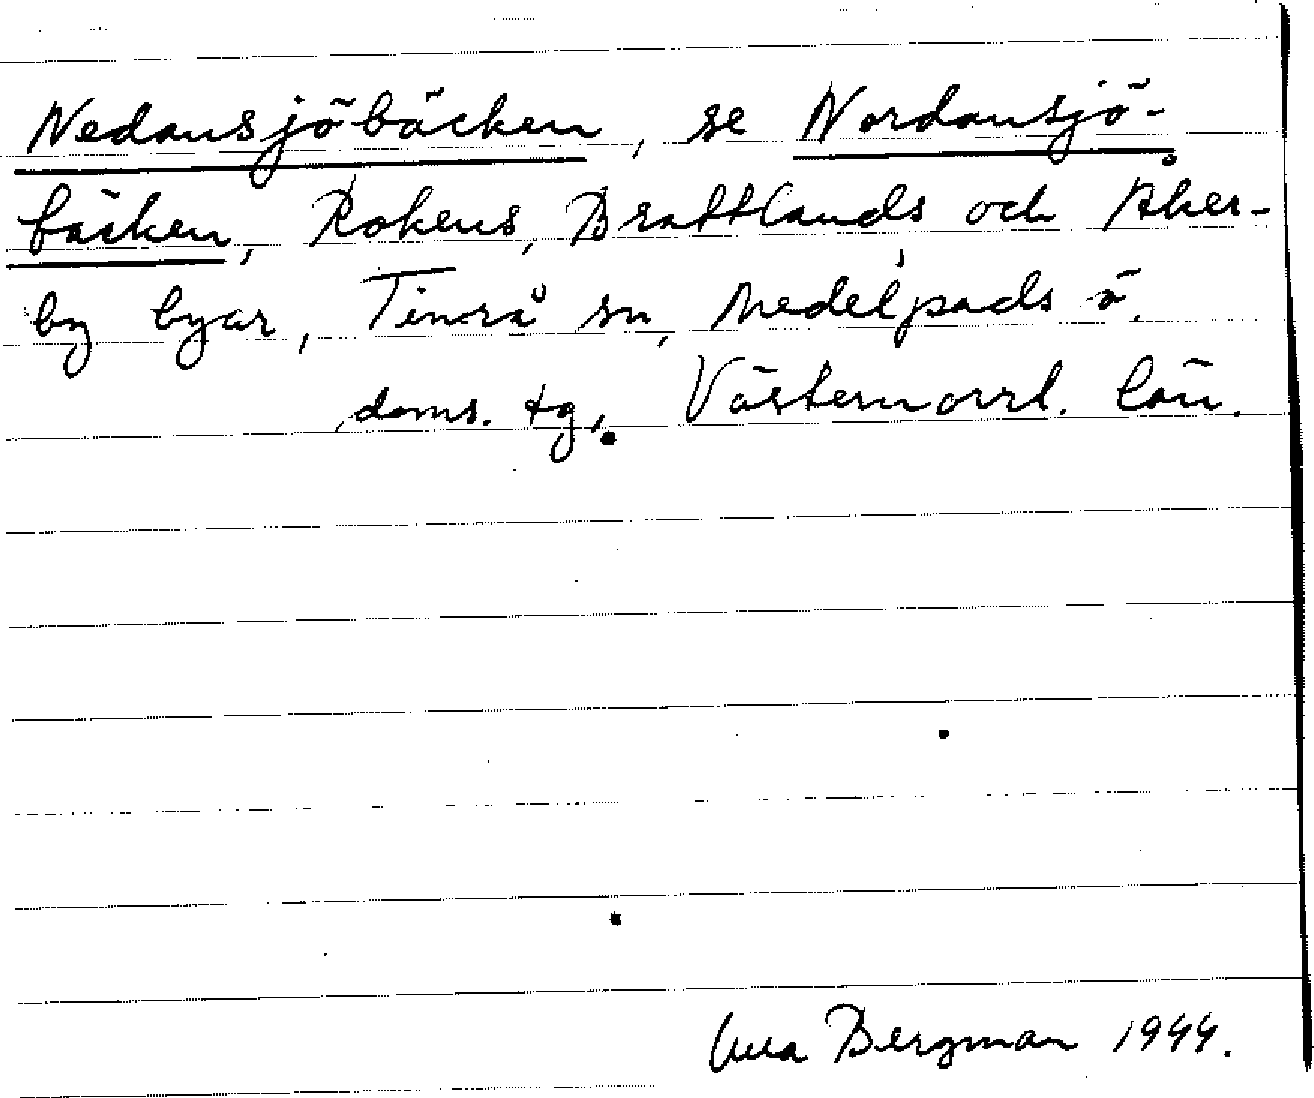 Nedansjöbäcken, se Nordansjö-
bäcken, Rokens, Brattlands och Åker-
by byar, Timrå sn, Medelpads ö.
doms. tg, Västernorrl. län.
Bergman 1944.